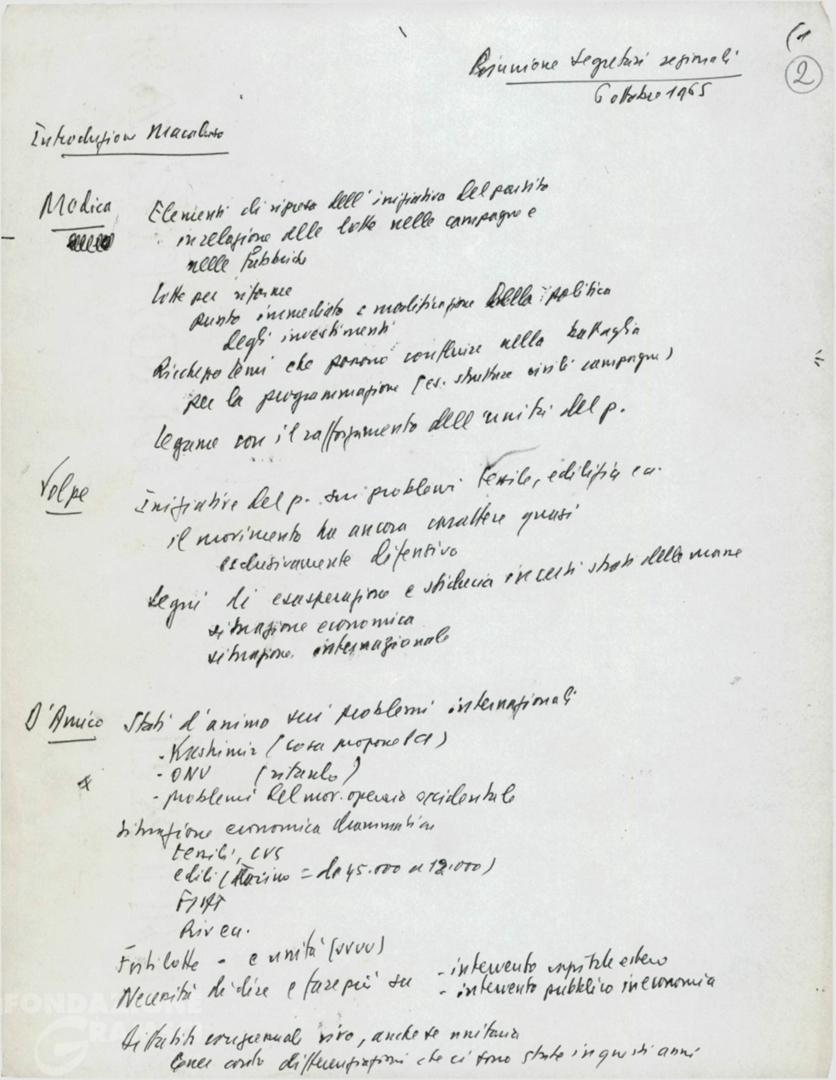 (1
2
Riunione segretari regionali
6 ottobre 1965
Introduzione Macaluso
Modica Elementi di ripresa dell'iniziativa del partito
in relazione alle lotte nelle campagne e
nelle fabbriche
lotte per riforme
punto immediato = modificazione della politica
degli investimenti
Ricchezza temi che possono confluire nella battaglia
per la programmazione (es. strutture civili campagne)
legame con il rafforzamento dell'unità del p.
Volpe Iniziative del p. sui problemi tessile, edilizia ecc.
il movimento ha ancora carattere quasi
esclusivamente difensivo
segni di esasperazione e sfiducia in certi strati della masse
situazione economica
situazione internazionale
D'Amico Stati d'animo sui problemi internazionali
- Kashmir (cosa propone la C)
- ONU (ritardo)
- problemi del mov. operaio occidentale
situazione economica drammatica
tessili, CVS
edili (Torino = da 45.000 a 12.000)
FIAT
Riv ecc.
Forti lotte - e unità
Necessità di dire e fare più su - intervento capitale estero
- intervento pubblico in economia
Dibattito congressuale vivo, anche se unitario
tener conto differenziazioni che ci sono state in questi anni
FONDAZIONE
GRAMSCI